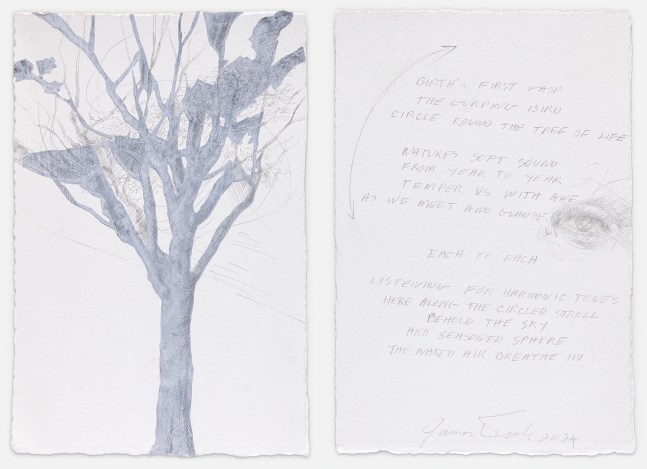 BIRTH'S FIRST GASP
THE LURPING BIRD
CIRCLE ROUND THE TREE OF LIFE
NATURES SOFT SOUND
FROM YEAR TO YEAR
TEMPER US WITH AWE
AS WE MEET AND GLANCE
EACH TO EACH
LISTENING FOR HARMONIC TONES
HERE ALONG THE CIRCLED STROLL
BEHOLD THE SKY
AND SEASONED SPHERE
THE NAKED AIR BREATHE IN
2024